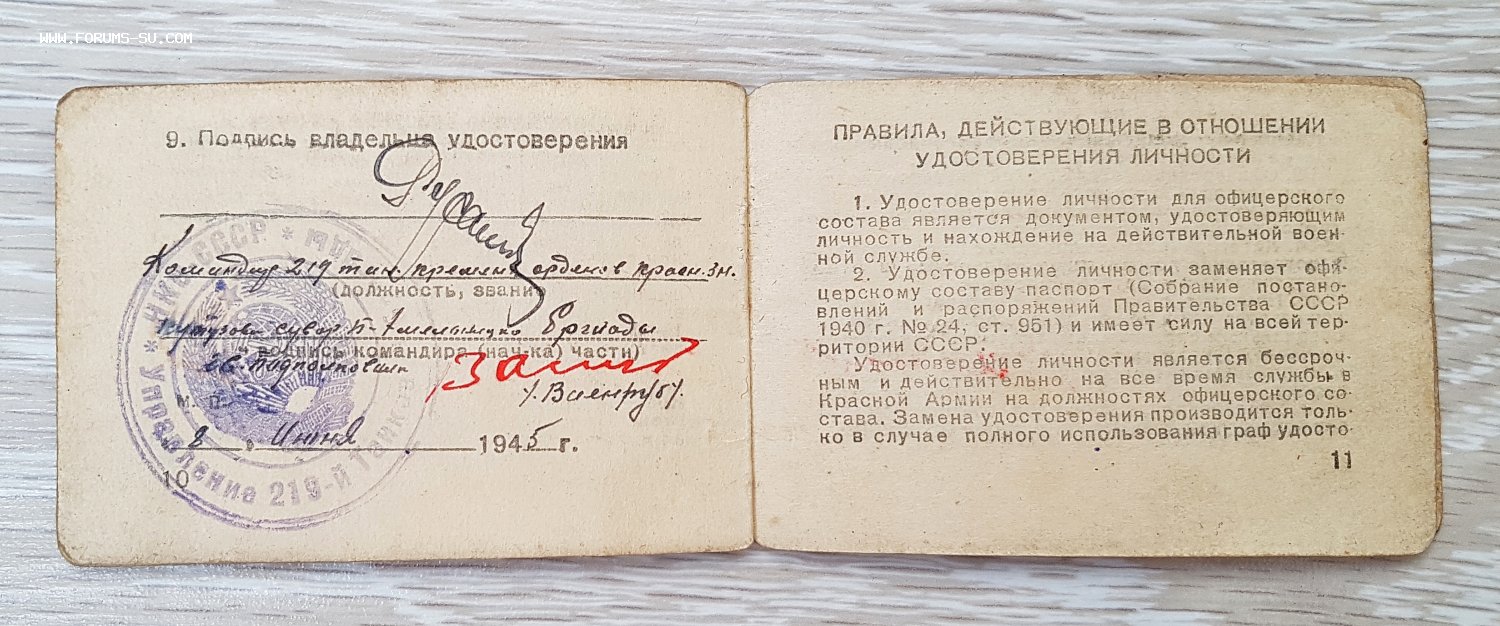 WWW.FORUMS-SU.COM
9. Подпись владельца удостоверения
Командир 219 тан. кремен. орденов красн. зн.
(должность, звание
Кутузова сувор. Б-Хмельницко Бригады
подпись командира (нач-ка) части)
гв. подполковник
/Вайнруб/.
М. П.
8 " Июня 1945 г.
10
НКО СССР * Управление 219-й танк
ПРАВИЛА, ДЕЙСТВУЮЩИЕ В ОТНОШЕНИИ
УДОСТОВЕРЕНИЯ ЛИЧНОСТИ
1. Удостоверение личности для офицерского
состава является документом, удостоверяющим
личность и нахождение на действительной воен-
ной службе.
2. Удостоверение личности заменяет офи-
церскому составу паспорт (Собрание постано-
влений и распоряжений Правительства СССР
1940 г. № 24, ст. 951) и имеет силу на всей тер-
ритории СССР.
Удостоверение личности является бессроч-
ным и действительно на все время службы в
Красной Армии на должностях офицерского со-
става. Замена удостоверения производится толь-
ко в случае полного использования граф удосто-
11